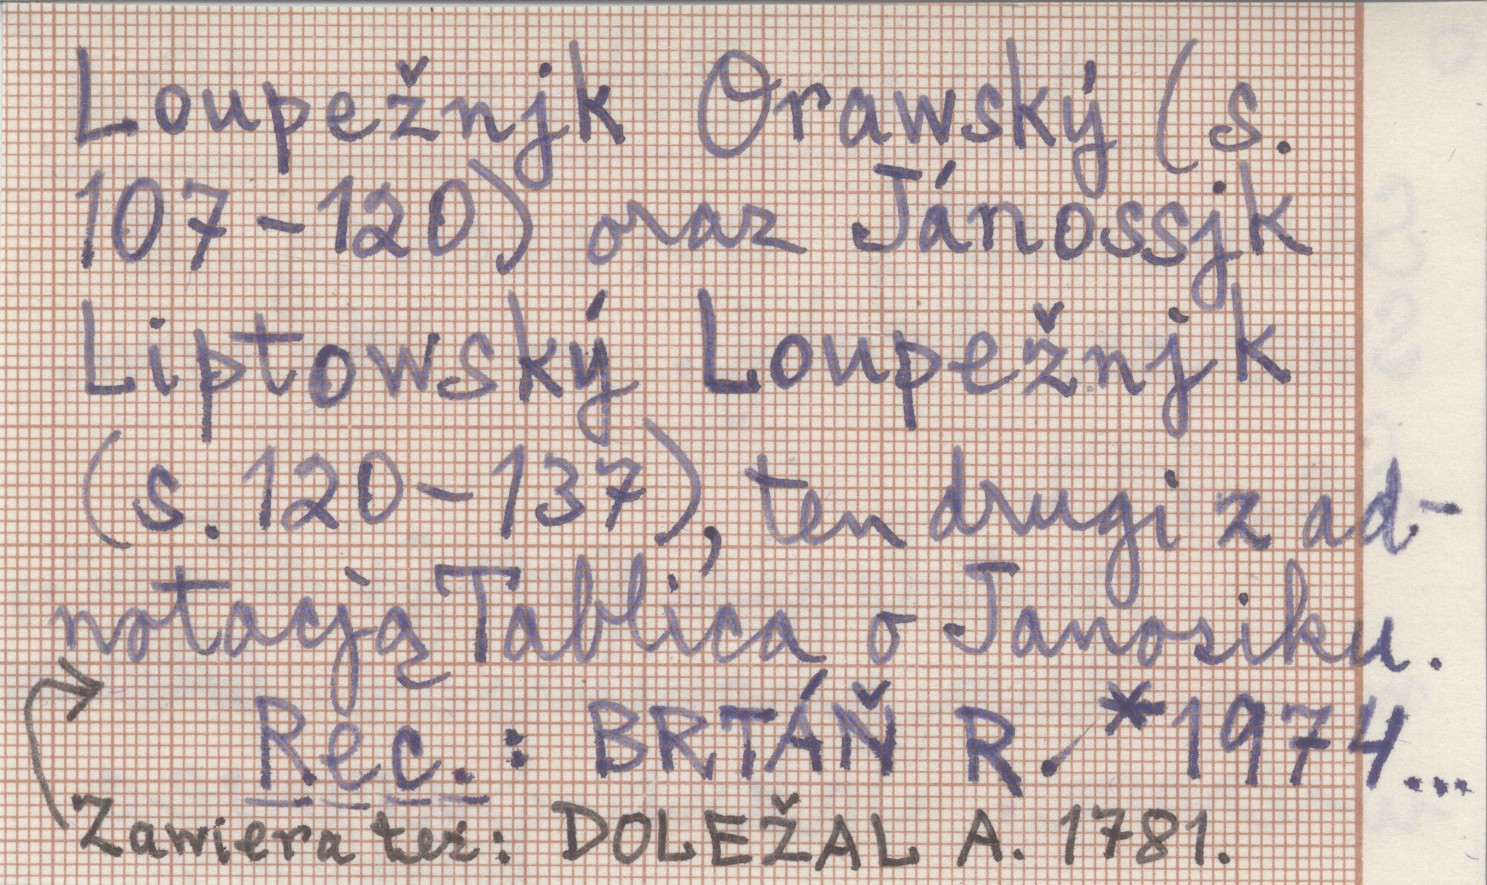 Loupežnjk Orawský (s.
107-120) oraz Jánossjk
Liptowský Loupežnjk
(s. 120-137), ten drugi z ad-
notacją Tablica o Janosiku.
Rec.: BRTÁŇ R. *1974...
Zawiera też: DOLEŽAL A. 1781.